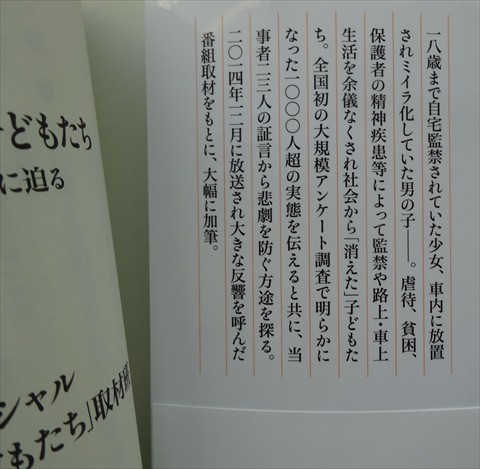 一八歳まで自宅監禁されていた少女、車内に放置
されミイラ化していた男の子――。虐待、貧困、
保護者の精神疾患等によって監禁や路上・車上
生活を余儀なくされ社会から「消えた」子どもた
ち。全国初の大規模アンケート調査で明らかに
なった一〇〇〇人超の実態を伝えると共に、当
事者二三人の証言から悲劇を防ぐ方途を探る。
二〇一四年一二月に放送され大きな反響を呼んだ
番組取材をもとに、大幅に加筆。
子どもたち
に迫る
シャル
もたち」取材